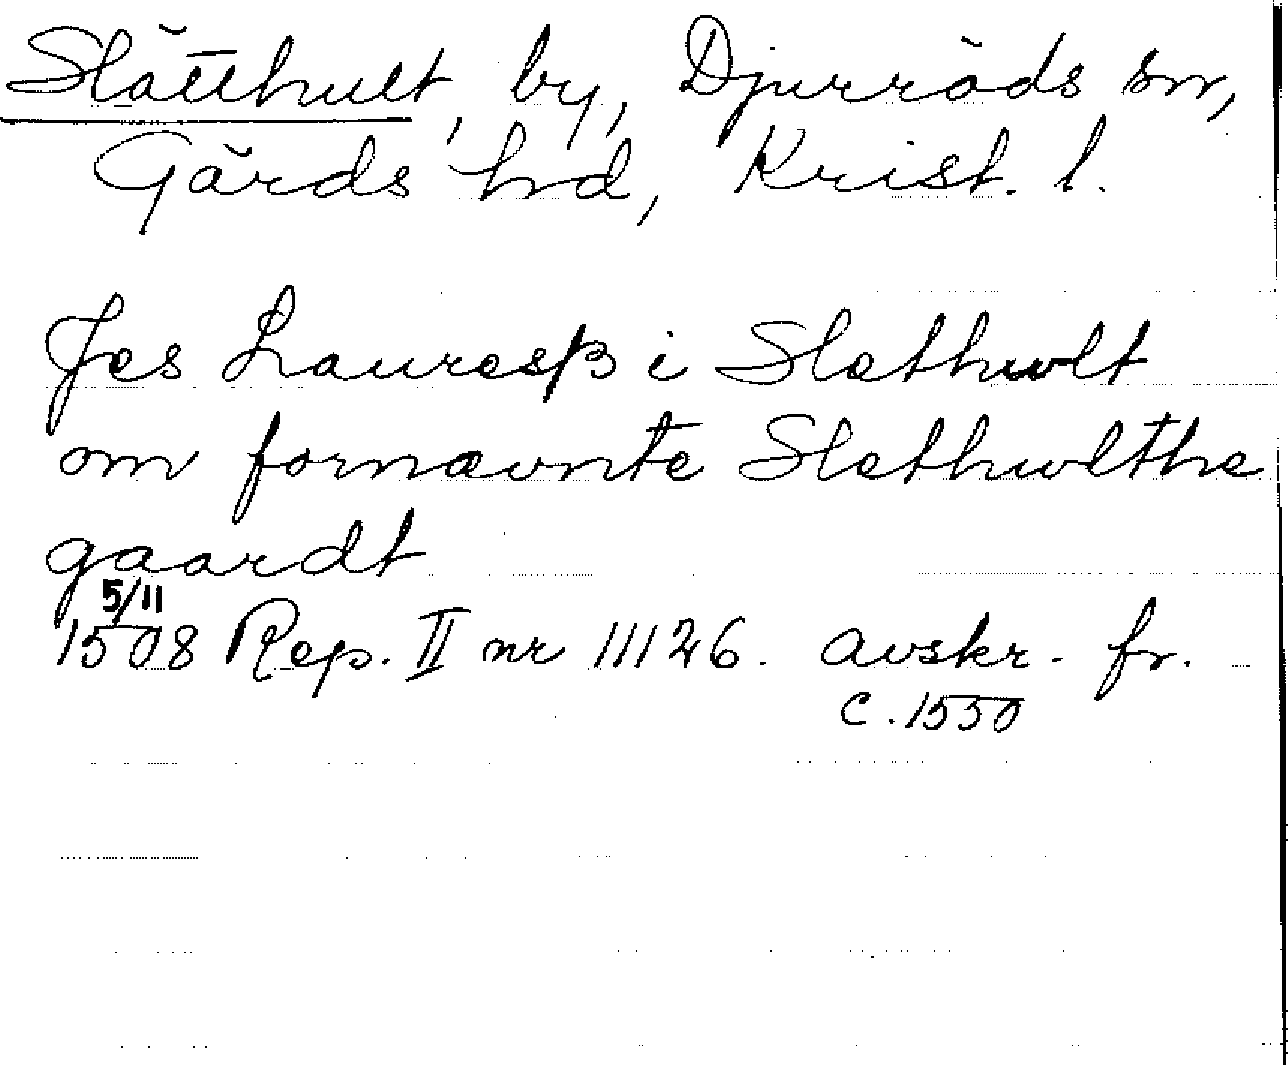 Slätthult, by, Djurröds sn,
Gärds hd, Krist. l.
Jes Lauresß i Slethwlt
om fornævnte Slethwlthe
gaardt
5/11
1508 Rep. II nr 11126. Avskr. fr.
c. 1550